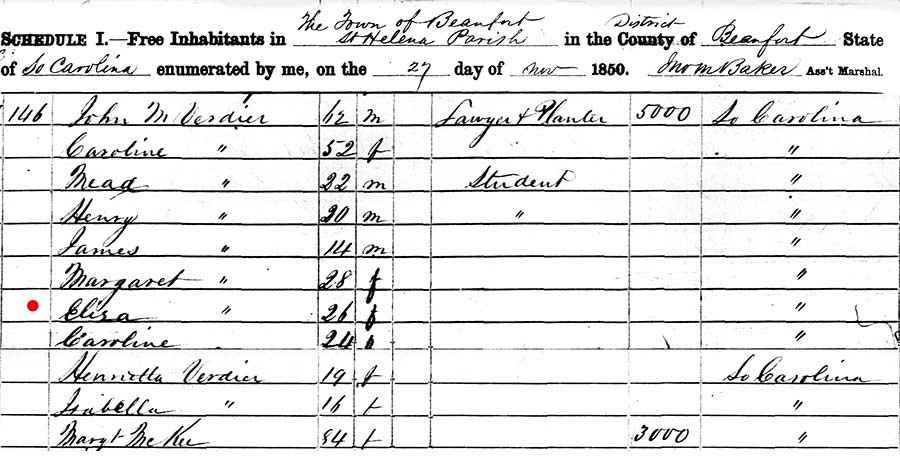 The Town of Beaufort
St Helena Parish
District
SCHEDULE I.—Free Inhabitants in in the County of Beaufort State
of So Carolina enumerated by me, on the 27 day of Nov 1850. Jno m Baker Ass't Marshal.
146 John M Verdier 62 m Lawyer & Planter 5000 So Carolina
Caroline " 52 f "
Mead " 22 m Student "
Henry " 20 m " "
James " 14 m "
Margaret " 28 f "
Eliza " 26 f "
Caroline 24 "
Henrietta Verdier 19 f So Carolina
Isabella " 16 f "
Margt McKee 84 f 3000 "